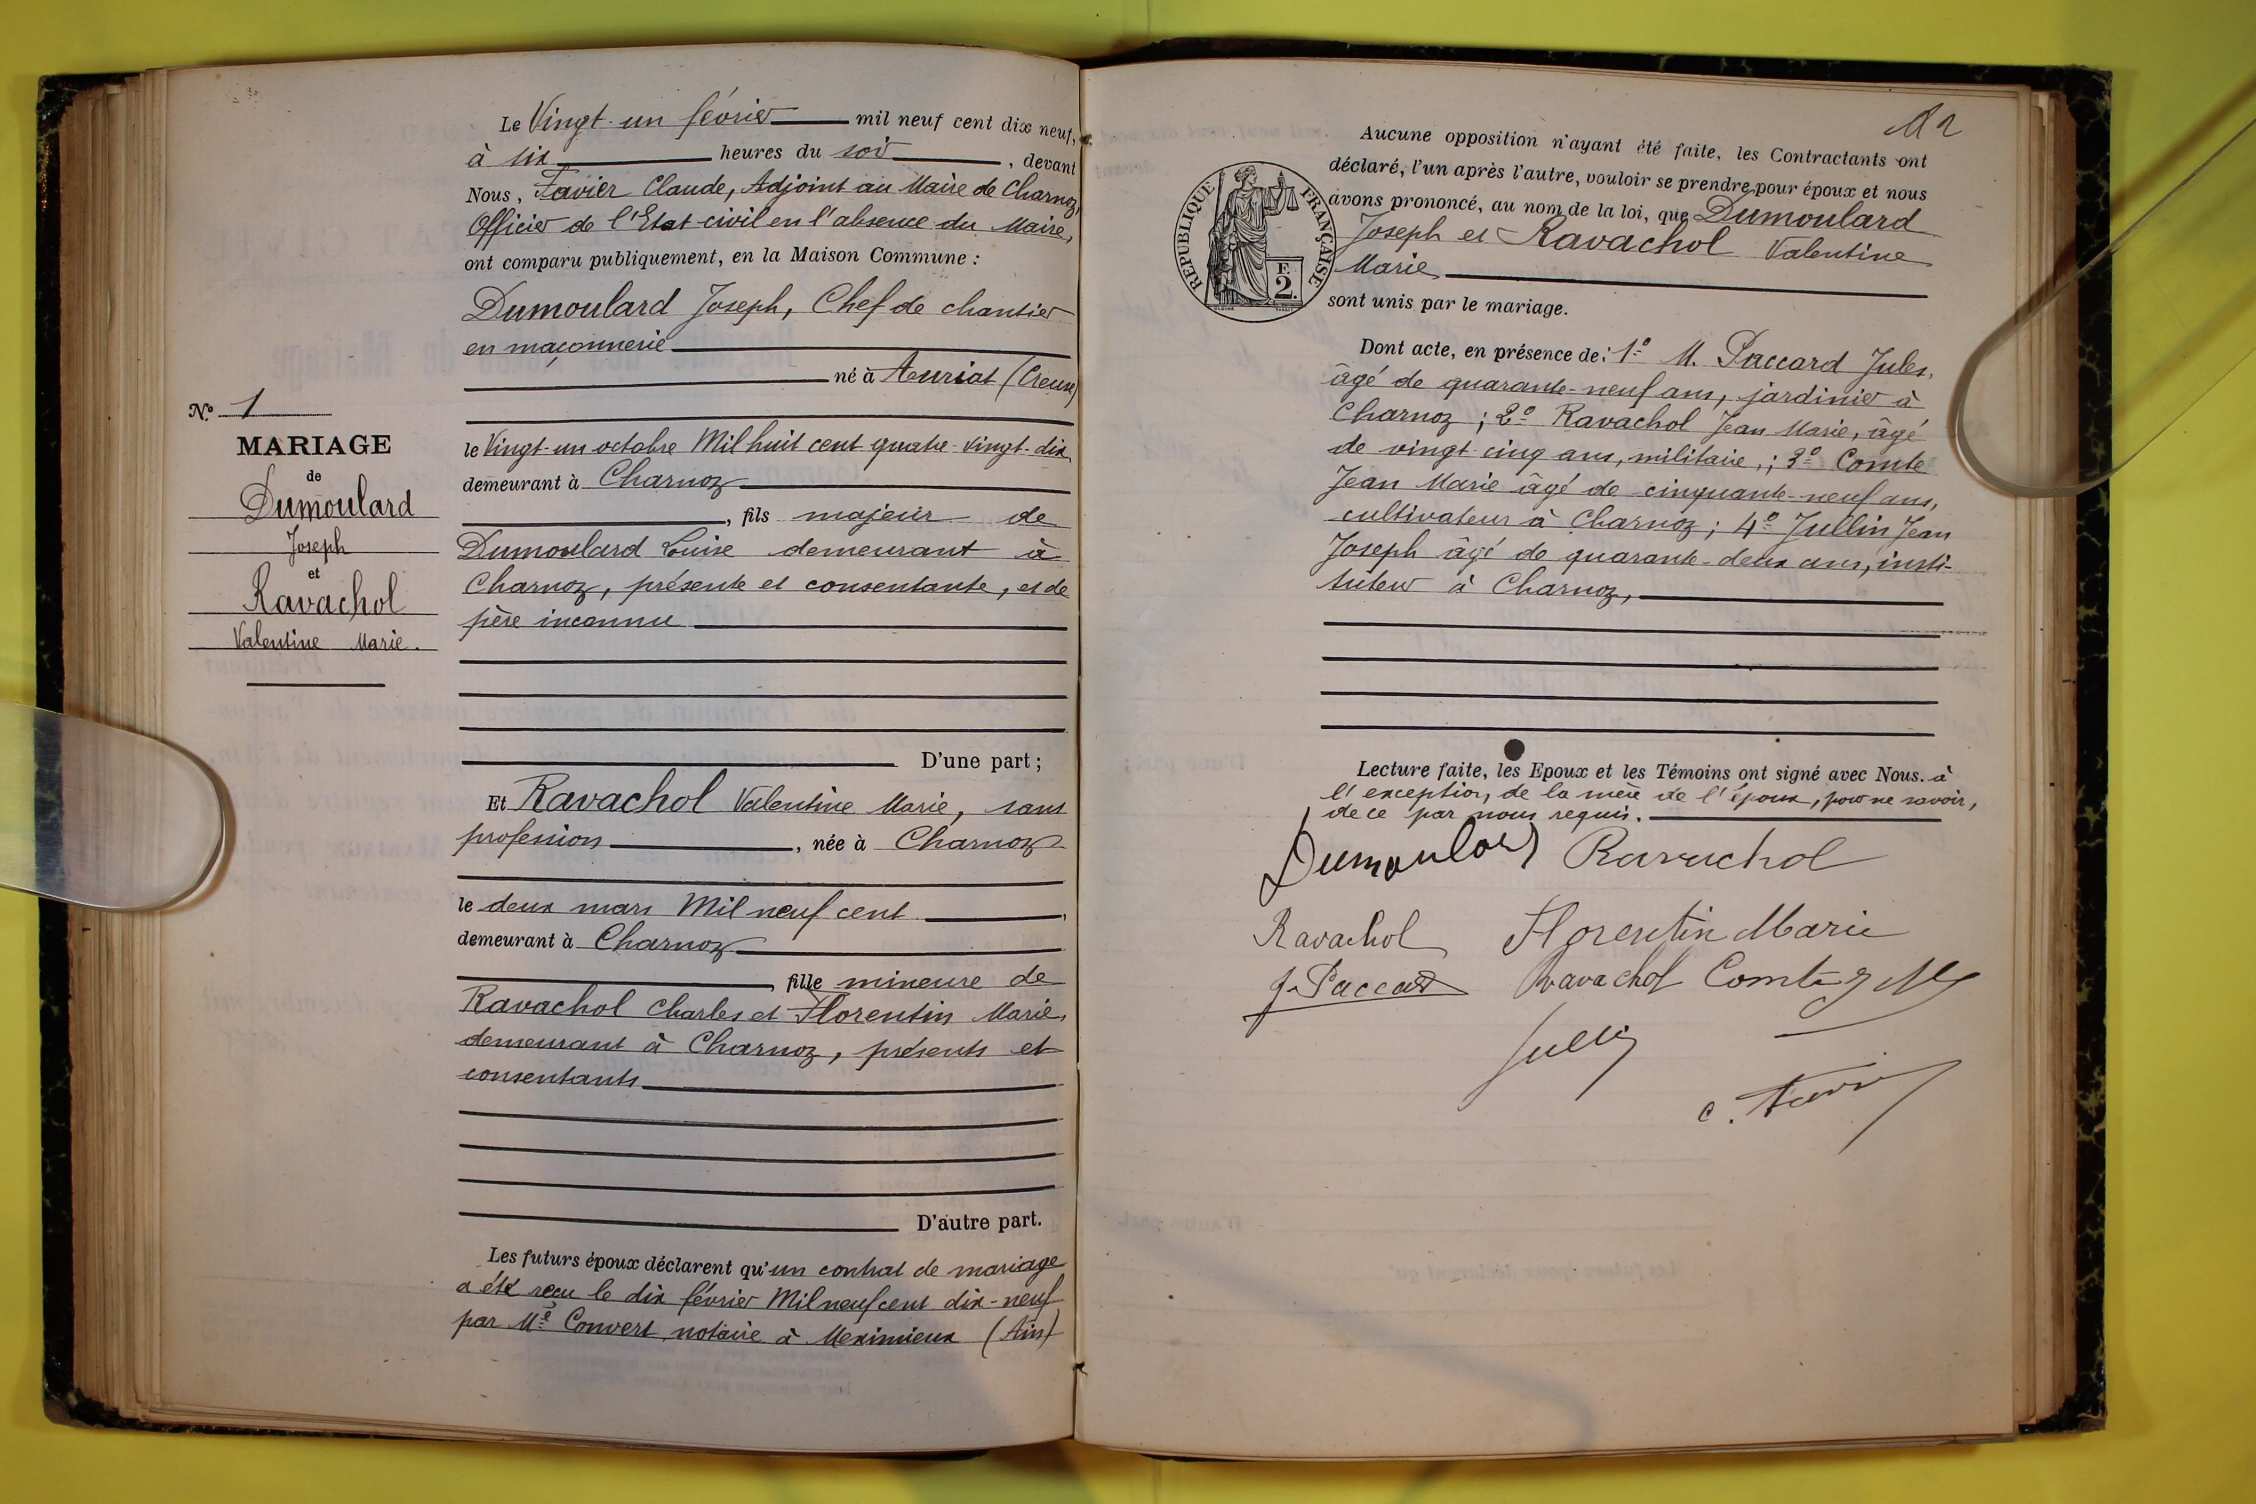 Le Vingt-un février mil neuf cent dix neuf,
à six heures du soir, devant
Nous, Favier Claude, Adjoint au Maire de Charnoz,
Officier de l'Etat-civil en l'absence du Maire,
ont comparu publiquement, en la Maison Commune :
Dumoulard Joseph, Chef de chantier
en maçonnerie
né à Auriat (Creuse)
le Vingt-un octobre Mil huit cent quatre-vingt-dix
demeurant à Charnoz
, fils majeur de
Dumoulard Louise demeurant à
Charnoz, présente et consentante, et de
père inconnu
D'une part ;
Et Ravachol Valentine Marie, sans
profession, née à Charnoz
le deux mars Mil neuf cent,
demeurant à Charnoz
, fille mineure de
Ravachol Charles et Florentin Marie,
demeurant à Charnoz, présents et
consentants
D'autre part.
Les futurs époux déclarent qu'un contrat de mariage
a été reçu le dix février Mil neuf cent dix-neuf
par Me Convert notaire à Meximieux (Ain)
N° 1
MARIAGE
de
Dumoulard
Joseph
et
Ravachol
Valentine Marie.
Aucune opposition n'ayant été faite, les Contractants ont
déclaré, l'un après l'autre, vouloir se prendre pour époux et nous
avons prononcé, au nom de la loi, que Dumoulard
Joseph et Ravachol Valentine
Marie
sont unis par le mariage.
RÉPUBLIQUE FRANÇAISE
F.
2.
Dont acte, en présence de : 1° M. Paccard Jules,
âgé de quarante-neuf ans, jardinier à
Charnoz ; 2° Ravachol Jean Marie, âgé
de vingt-cinq ans, militaire, ; 3° Comte
Jean Marie âgé de cinquante-neuf ans,
cultivateur à Charnoz ; 4° Jullin Jean
Joseph âgé de quarante-deux ans, insti-
tuteur à Charnoz,
Lecture faite, les Epoux et les Témoins ont signé avec Nous. à
l'exception, de la mère de l'époux, pour ne savoir,
de ce par nous requis.
Dumoulard Ravachol
Ravachol Florentin Marie
J. Paccard Ravachol Comte J M
Jullin
C. Favier